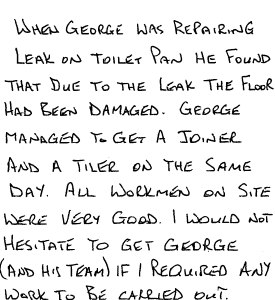 When George was repairing
leak on toilet pan he found
that due to the leak the floor
had been damaged. George
managed to get a joiner
and a tiler on the same
day. All workmen on site
were very good. I would not
hesitate to get George
(and his team) if I required any
work to be carried out.